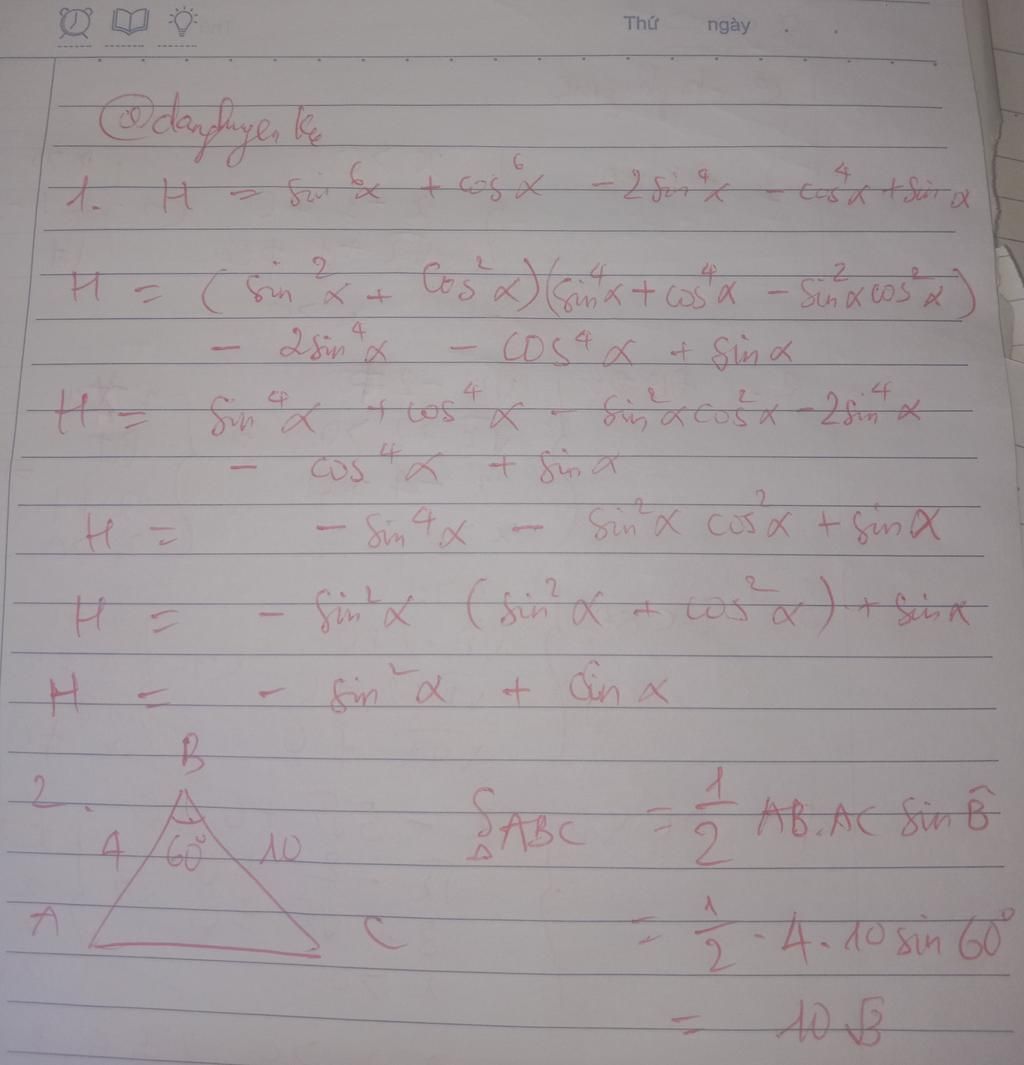 Thứ ngày . .
1. H = sin⁶α + cos⁶α - 2sin⁴α - cos⁴α + sin α
H = (sin²α + cos²α)(sin⁴α + cos⁴α - sin²α cos²α)
- 2sin⁴α - cos⁴α + sin α
H = sin⁴α + cos⁴α - sin²α cos²α - 2sin⁴α
- cos⁴α + sin α
H = - sin⁴α - sin²α cos²α + sin α
H = - sin²α (sin²α + cos²α) + sin α
H = - sin²α + sin α
B
2. S△ABC = 1/2 AB.AC sin B̂
4 60° 10
A C = 1/2 . 4 . 10 sin 60°
= 10√3